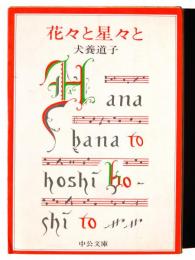 花々と星々と
犬養道子
Hana
hana to
hoshi ho-
shi to
中公文庫